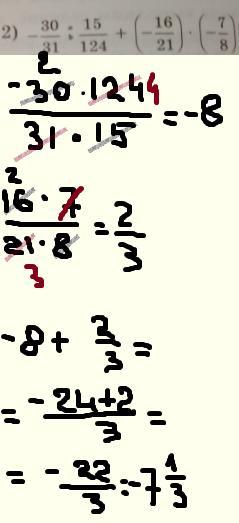 2) -30/31 : 15/124 + (-16/21) · (-7/8)
2
-30·124 4
31·15 = -8
2
16·7
21·8 = 2/3
3
-8 + 2/3 =
= -24+2/3 =
= -22/3 = -7 1/3